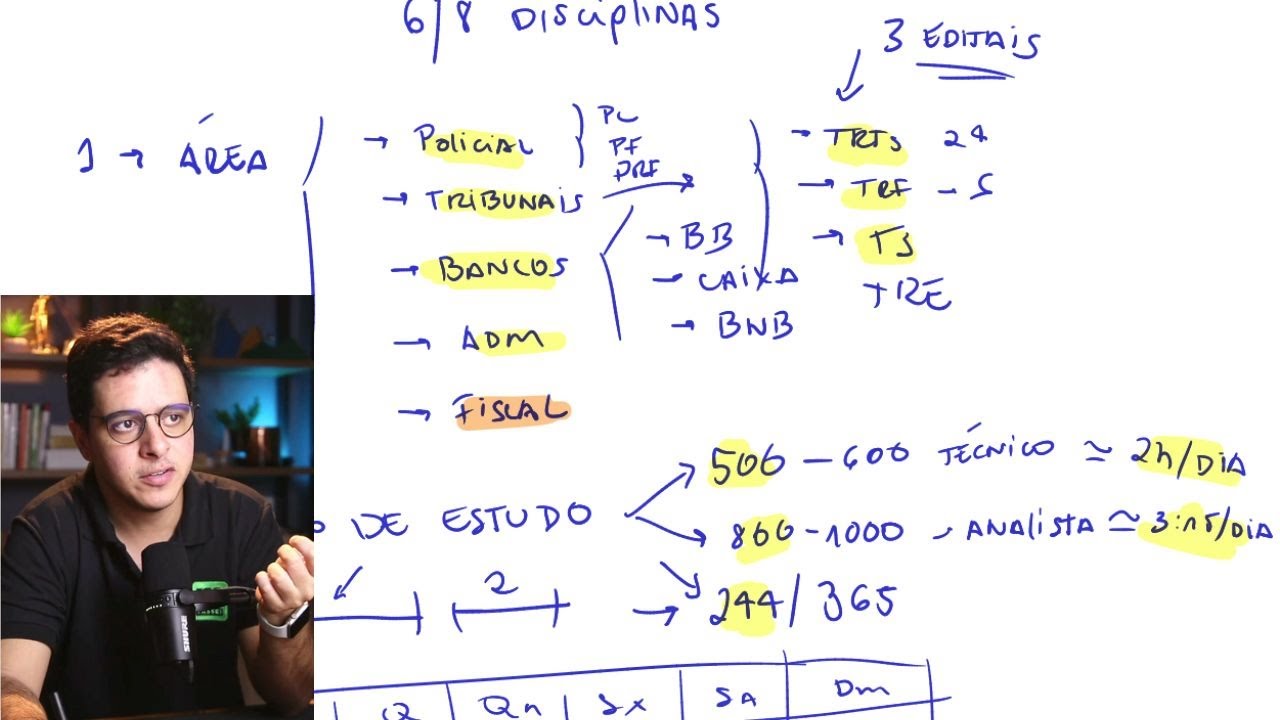 6/8 DISCIPLINAS
3 EDITAIS
1 → ÁREA
→ POLICIAL
PC
PF
PRF
→ TRIBUNAIS
→ BANCOS
→ BB
→ CAIXA
→ BNB
→ ADM
→ FISCAL
→ TRTs 24
→ TRF - 5
→ TJ
TRE
DE ESTUDO
500 - 600 TÉCNICO ≃ 2h/DIA
800 - 1000 → ANALISTA ≃ 3:15/DIA
2
→ 244/365
Q Qn Sx SA Dm
SHURE